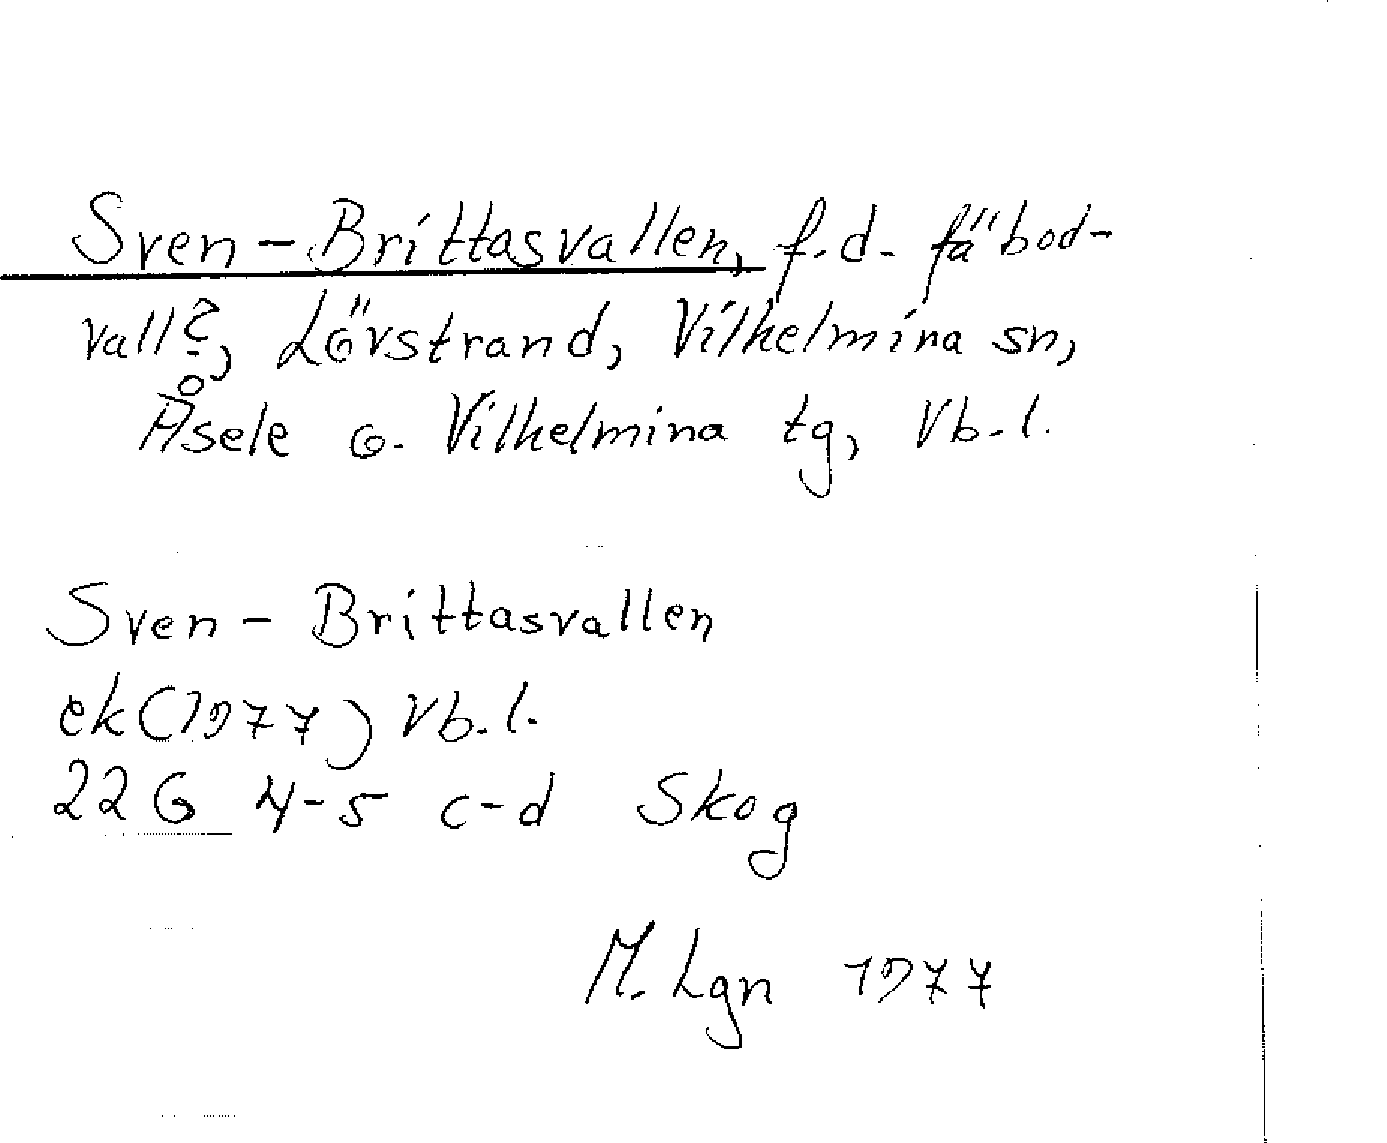 Sven-Brittasvallen, f.d. fäbod-
vall?, Lövstrand, Vilhelmina sn,
Åsele o. Vilhelmina tg, Vb.l.
Sven-Brittasvallen
ek(1977) Vb.l.
22G 4-5 c-d Skog
M. Lgn 1977